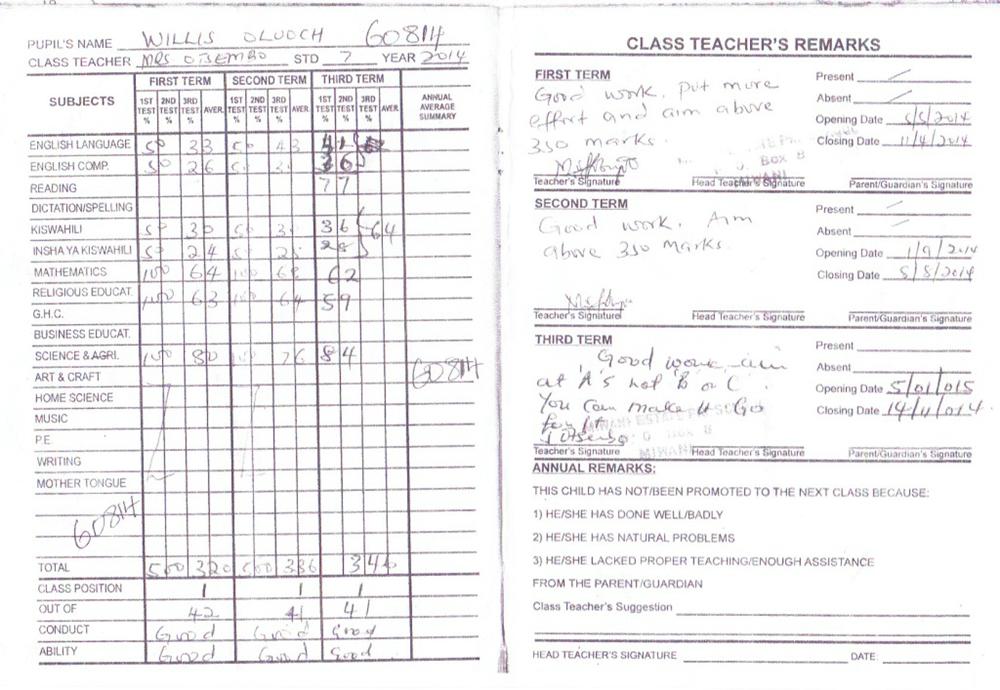 PUPIL'S NAME WILLIS OLUOCH 60814
CLASS TEACHER MRS OTSEMBO STD 7 YEAR 2014
SUBJECTS FIRST TERM SECOND TERM THIRD TERM ANNUAL AVERAGE SUMMARY
1ST TEST % 2ND TEST % 3RD TEST % AVER. 1ST TEST % 2ND TEST % 3RD TEST % AVER. 1ST TEST % 2ND TEST % 3RD TEST % AVER.
ENGLISH LANGUAGE 50 33 50 43 41
ENGLISH COMP. 50 26 50 36
READING 77
DICTATION/SPELLING
KISWAHILI 50 30 50 36 64
INSHA YA KISWAHILI 50 24 50 28
MATHEMATICS 100 64 100 62
RELIGIOUS EDUCAT. 100 63 100 64 59
G.H.C.
BUSINESS EDUCAT.
SCIENCE & AGRI. 100 80 100 76 84
ART & CRAFT 60814
HOME SCIENCE
MUSIC
P.E.
WRITING
MOTHER TONGUE
60814
TOTAL 500 320 500 336 346
CLASS POSITION 1 1 1
OUT OF 42 41 41
CONDUCT Good Good Good
ABILITY Good Good Good
CLASS TEACHER'S REMARKS
FIRST TERM
Good work, put more
effort and aim above
350 marks.
Present
Absent
Opening Date 5/5/2014
Closing Date 11/4/2014
BOX 8
MIWANI
Teacher's Signature Head Teacher's Signature Parent/Guardian's Signature
SECOND TERM
Good work. Aim
above 350 marks.
Present
Absent
Opening Date 1/9/2014
Closing Date 8/8/2014
Teacher's Signature Head Teacher's Signature Parent/Guardian's Signature
THIRD TERM
Good work, aim
at A's not B or C.
You can make it Go
for it
Present
Absent
Opening Date 5/01/015
Closing Date 14/11/014.
BOX 8
MIWANI
Teacher's Signature Head Teacher's Signature Parent/Guardian's Signature
ANNUAL REMARKS:
THIS CHILD HAS NOT/BEEN PROMOTED TO THE NEXT CLASS BECAUSE:
1) HE/SHE HAS DONE WELL/BADLY
2) HE/SHE HAS NATURAL PROBLEMS
3) HE/SHE LACKED PROPER TEACHING/ENOUGH ASSISTANCE
FROM THE PARENT/GUARDIAN
Class Teacher's Suggestion
HEAD TEACHER'S SIGNATURE DATE: